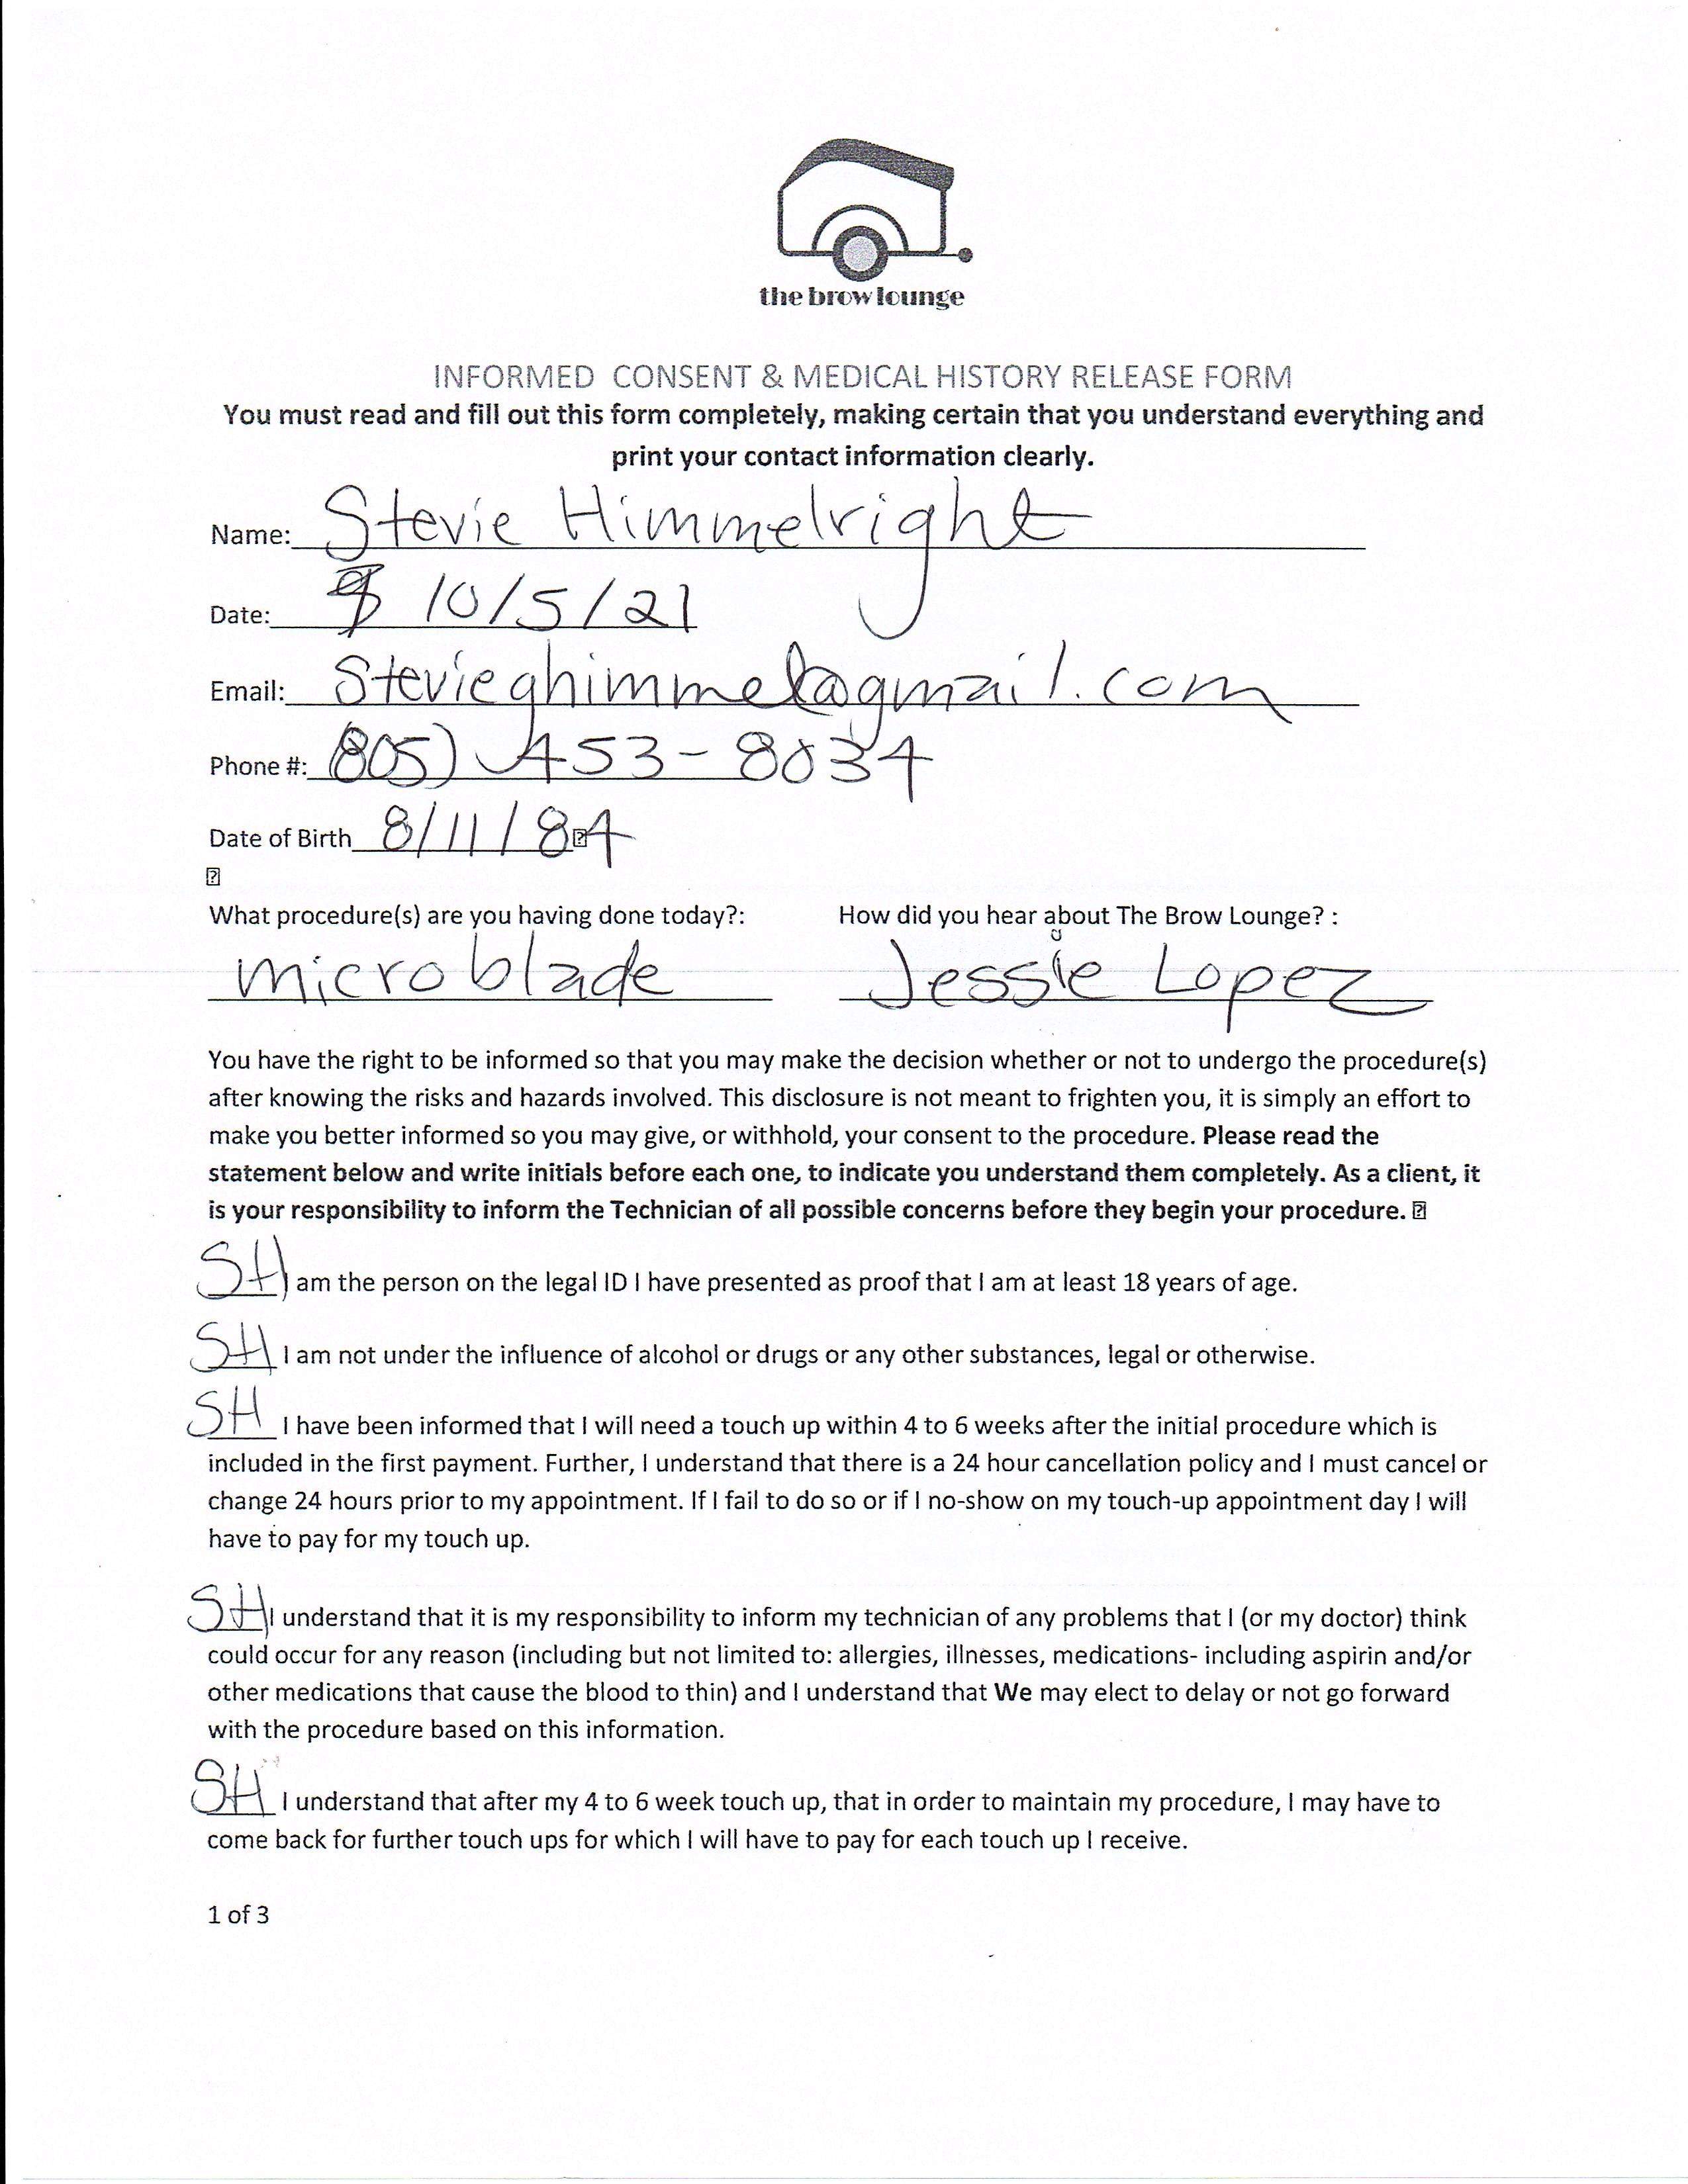 the brow lounge
INFORMED CONSENT & MEDICAL HISTORY RELEASE FORM
You must read and fill out this form completely, making certain that you understand everything and
print your contact information clearly.
Name: Stevie Himmelright
Date: 10/5/21
Email: Stevieghimmel@gmail.com
Phone #: (805) 453-8034
Date of Birth 8/11/84
What procedure(s) are you having done today?: How did you hear about The Brow Lounge? :
microblade Jessie Lopez
You have the right to be informed so that you may make the decision whether or not to undergo the procedure(s)
after knowing the risks and hazards involved. This disclosure is not meant to frighten you, it is simply an effort to
make you better informed so you may give, or withhold, your consent to the procedure. Please read the
statement below and write initials before each one, to indicate you understand them completely. As a client, it
is your responsibility to inform the Technician of all possible concerns before they begin your procedure.
SH I am the person on the legal ID I have presented as proof that I am at least 18 years of age.
SH I am not under the influence of alcohol or drugs or any other substances, legal or otherwise.
SH I have been informed that I will need a touch up within 4 to 6 weeks after the initial procedure which is
included in the first payment. Further, I understand that there is a 24 hour cancellation policy and I must cancel or
change 24 hours prior to my appointment. If I fail to do so or if I no-show on my touch-up appointment day I will
have to pay for my touch up.
SH I understand that it is my responsibility to inform my technician of any problems that I (or my doctor) think
could occur for any reason (including but not limited to: allergies, illnesses, medications- including aspirin and/or
other medications that cause the blood to thin) and I understand that We may elect to delay or not go forward
with the procedure based on this information.
SH I understand that after my 4 to 6 week touch up, that in order to maintain my procedure, I may have to
come back for further touch ups for which I will have to pay for each touch up I receive.
1 of 3